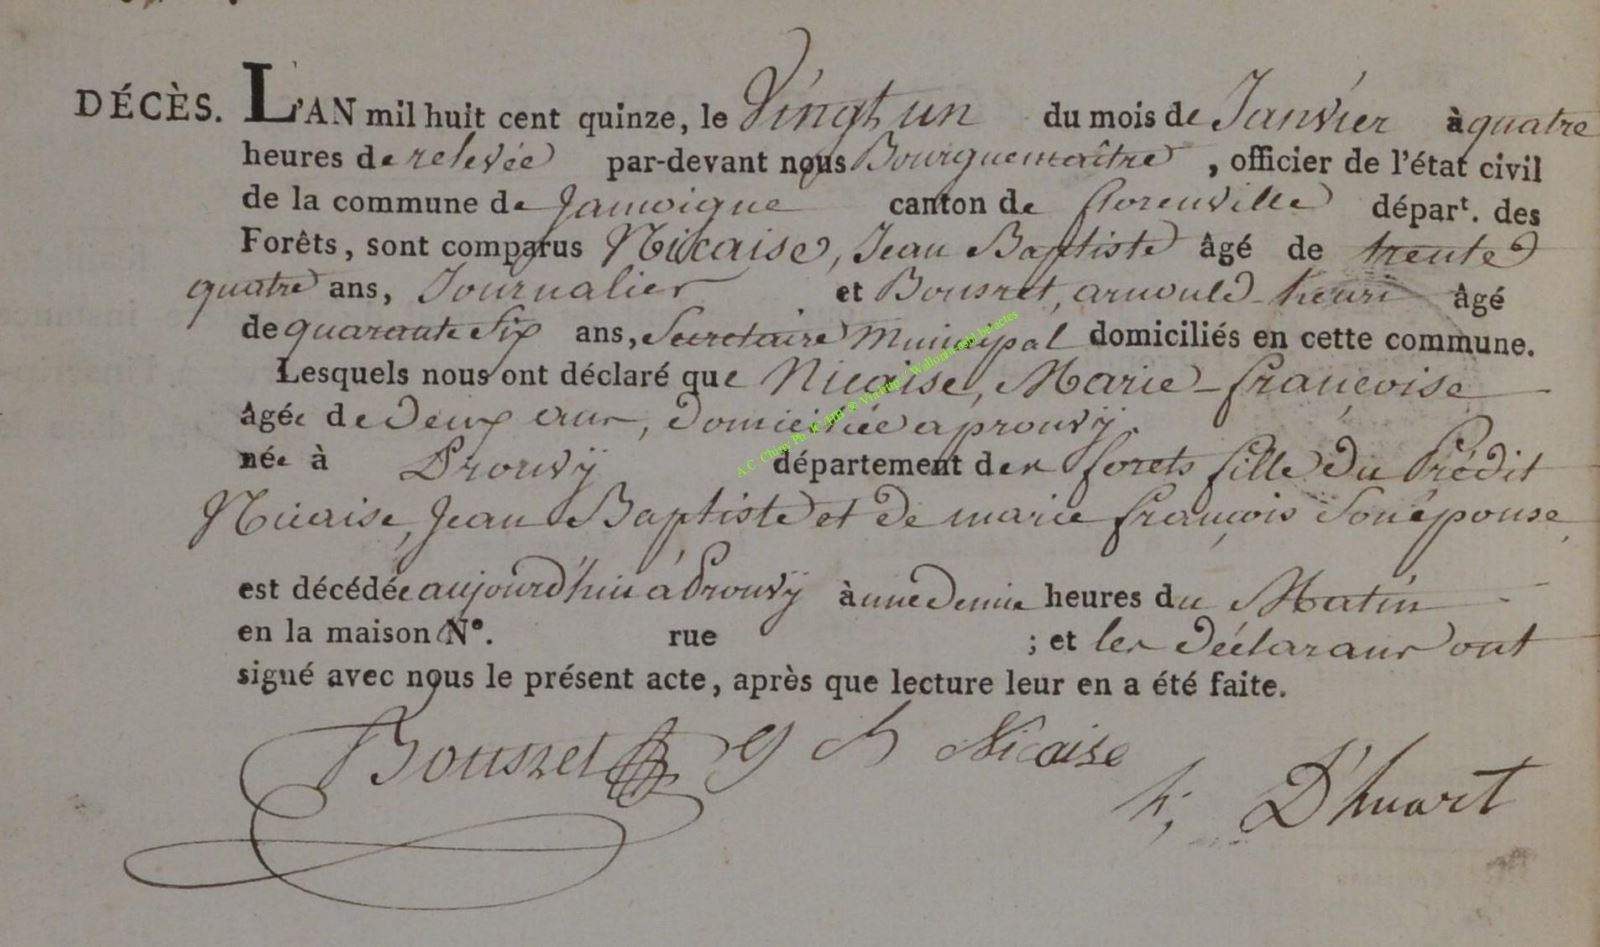 DÉCÈS. L'AN mil huit cent quinze, le Vingt un du mois de Janvier à quatre
heures de relevée par-devant nous Bourguemaître, officier de l'état civil
de la commune de Jamoigne canton de florenville départ. des
Forêts, sont comparus Nicaise, Jean Baptiste âgé de trente
quatre ans, Journalier et Bousret, arnould henri âgé
de quarante Six ans, Secretaire Municipal domiciliés en cette commune.
Lesquels nous ont déclaré que Nicaise, Marie françoise
âgée de Deux ans, domiciliée a prouvÿ
née à Prouvÿ département des forets fille du Prédit
Nicaise, Jean Baptiste et de marie françois Son épouse,
est décédée aujourd'hui à Prouvÿ à une Demie heures du Matin
en la maison N°. rue ; et les Déclarans ont
signé avec nous le présent acte, après que lecture leur en a été faite.
Bousret Nicaise
h; D'huart